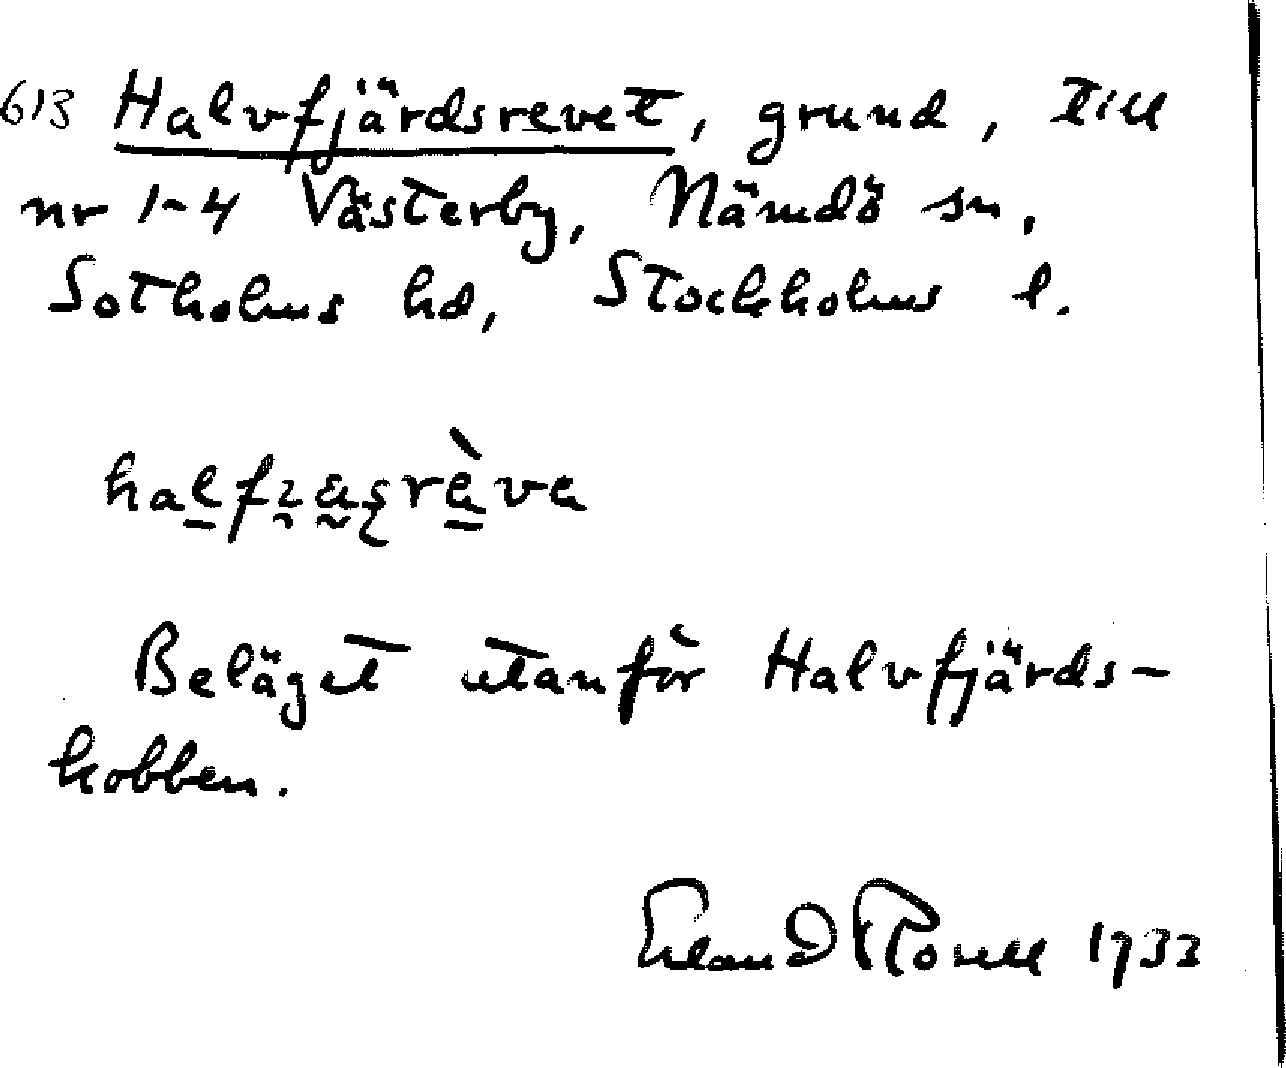 613 Halvfjärdsrevet, grund, till
nr 1-4 Västerby, Nämdö sn,
Sotholms hd, Stockholms l.
Beläget utanför Halvfjärds-
kobben.
Erland Rosell 1932